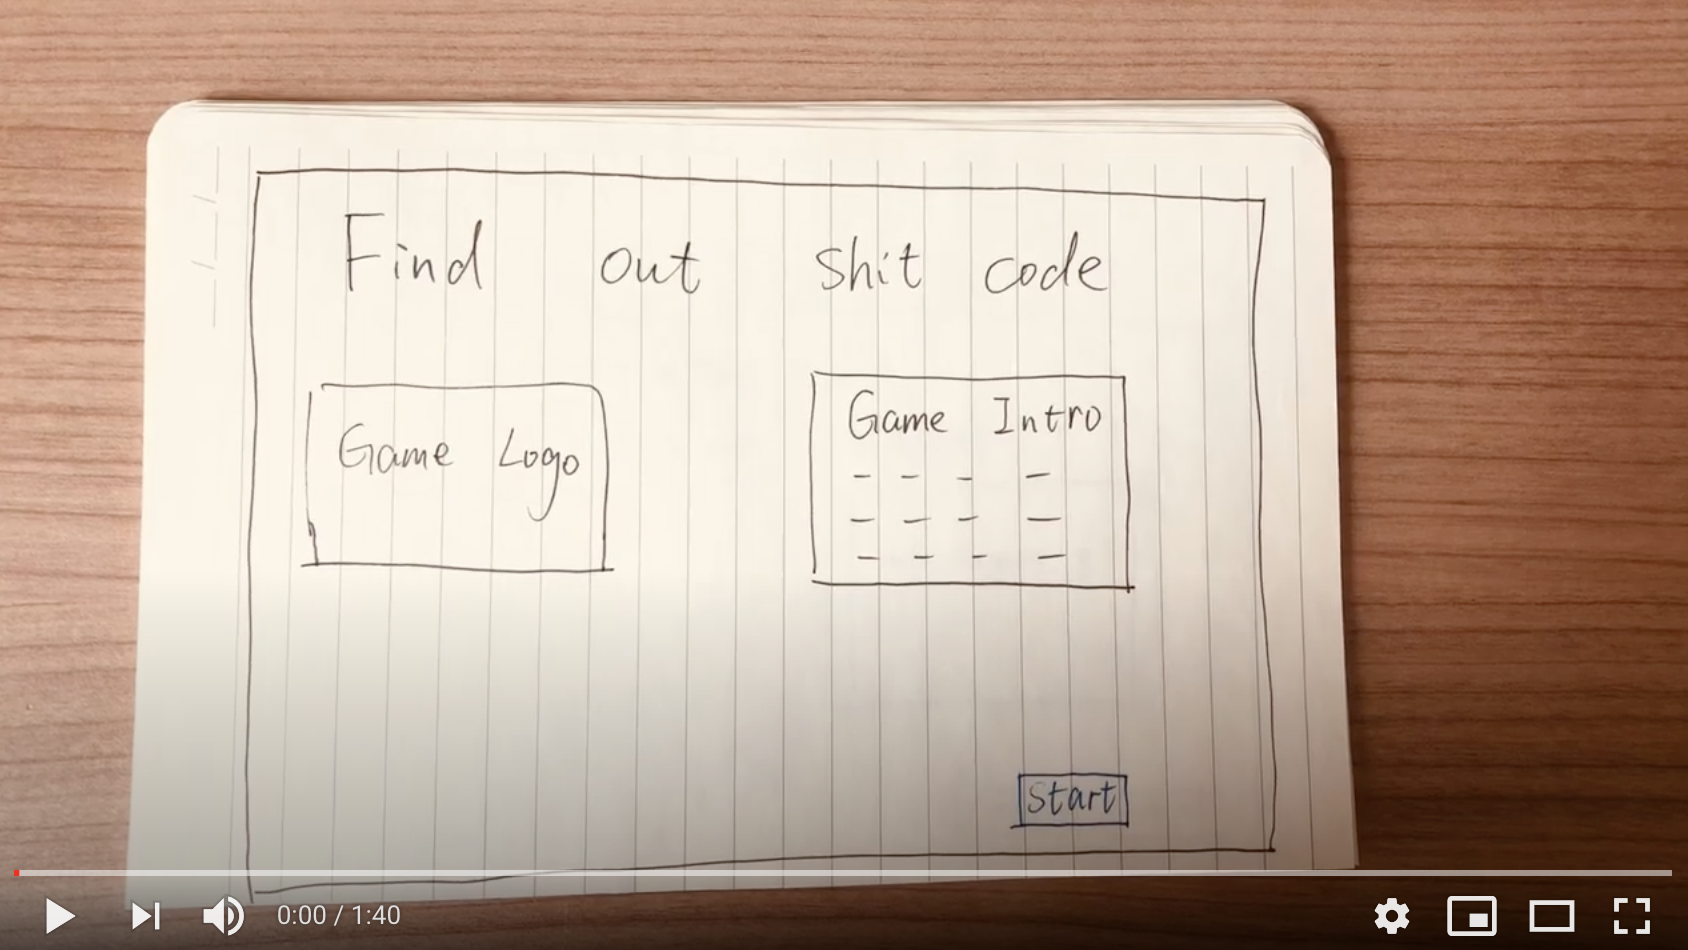 Find out shit code
Game Logo
Game Intro
Start
0:00 / 1:40